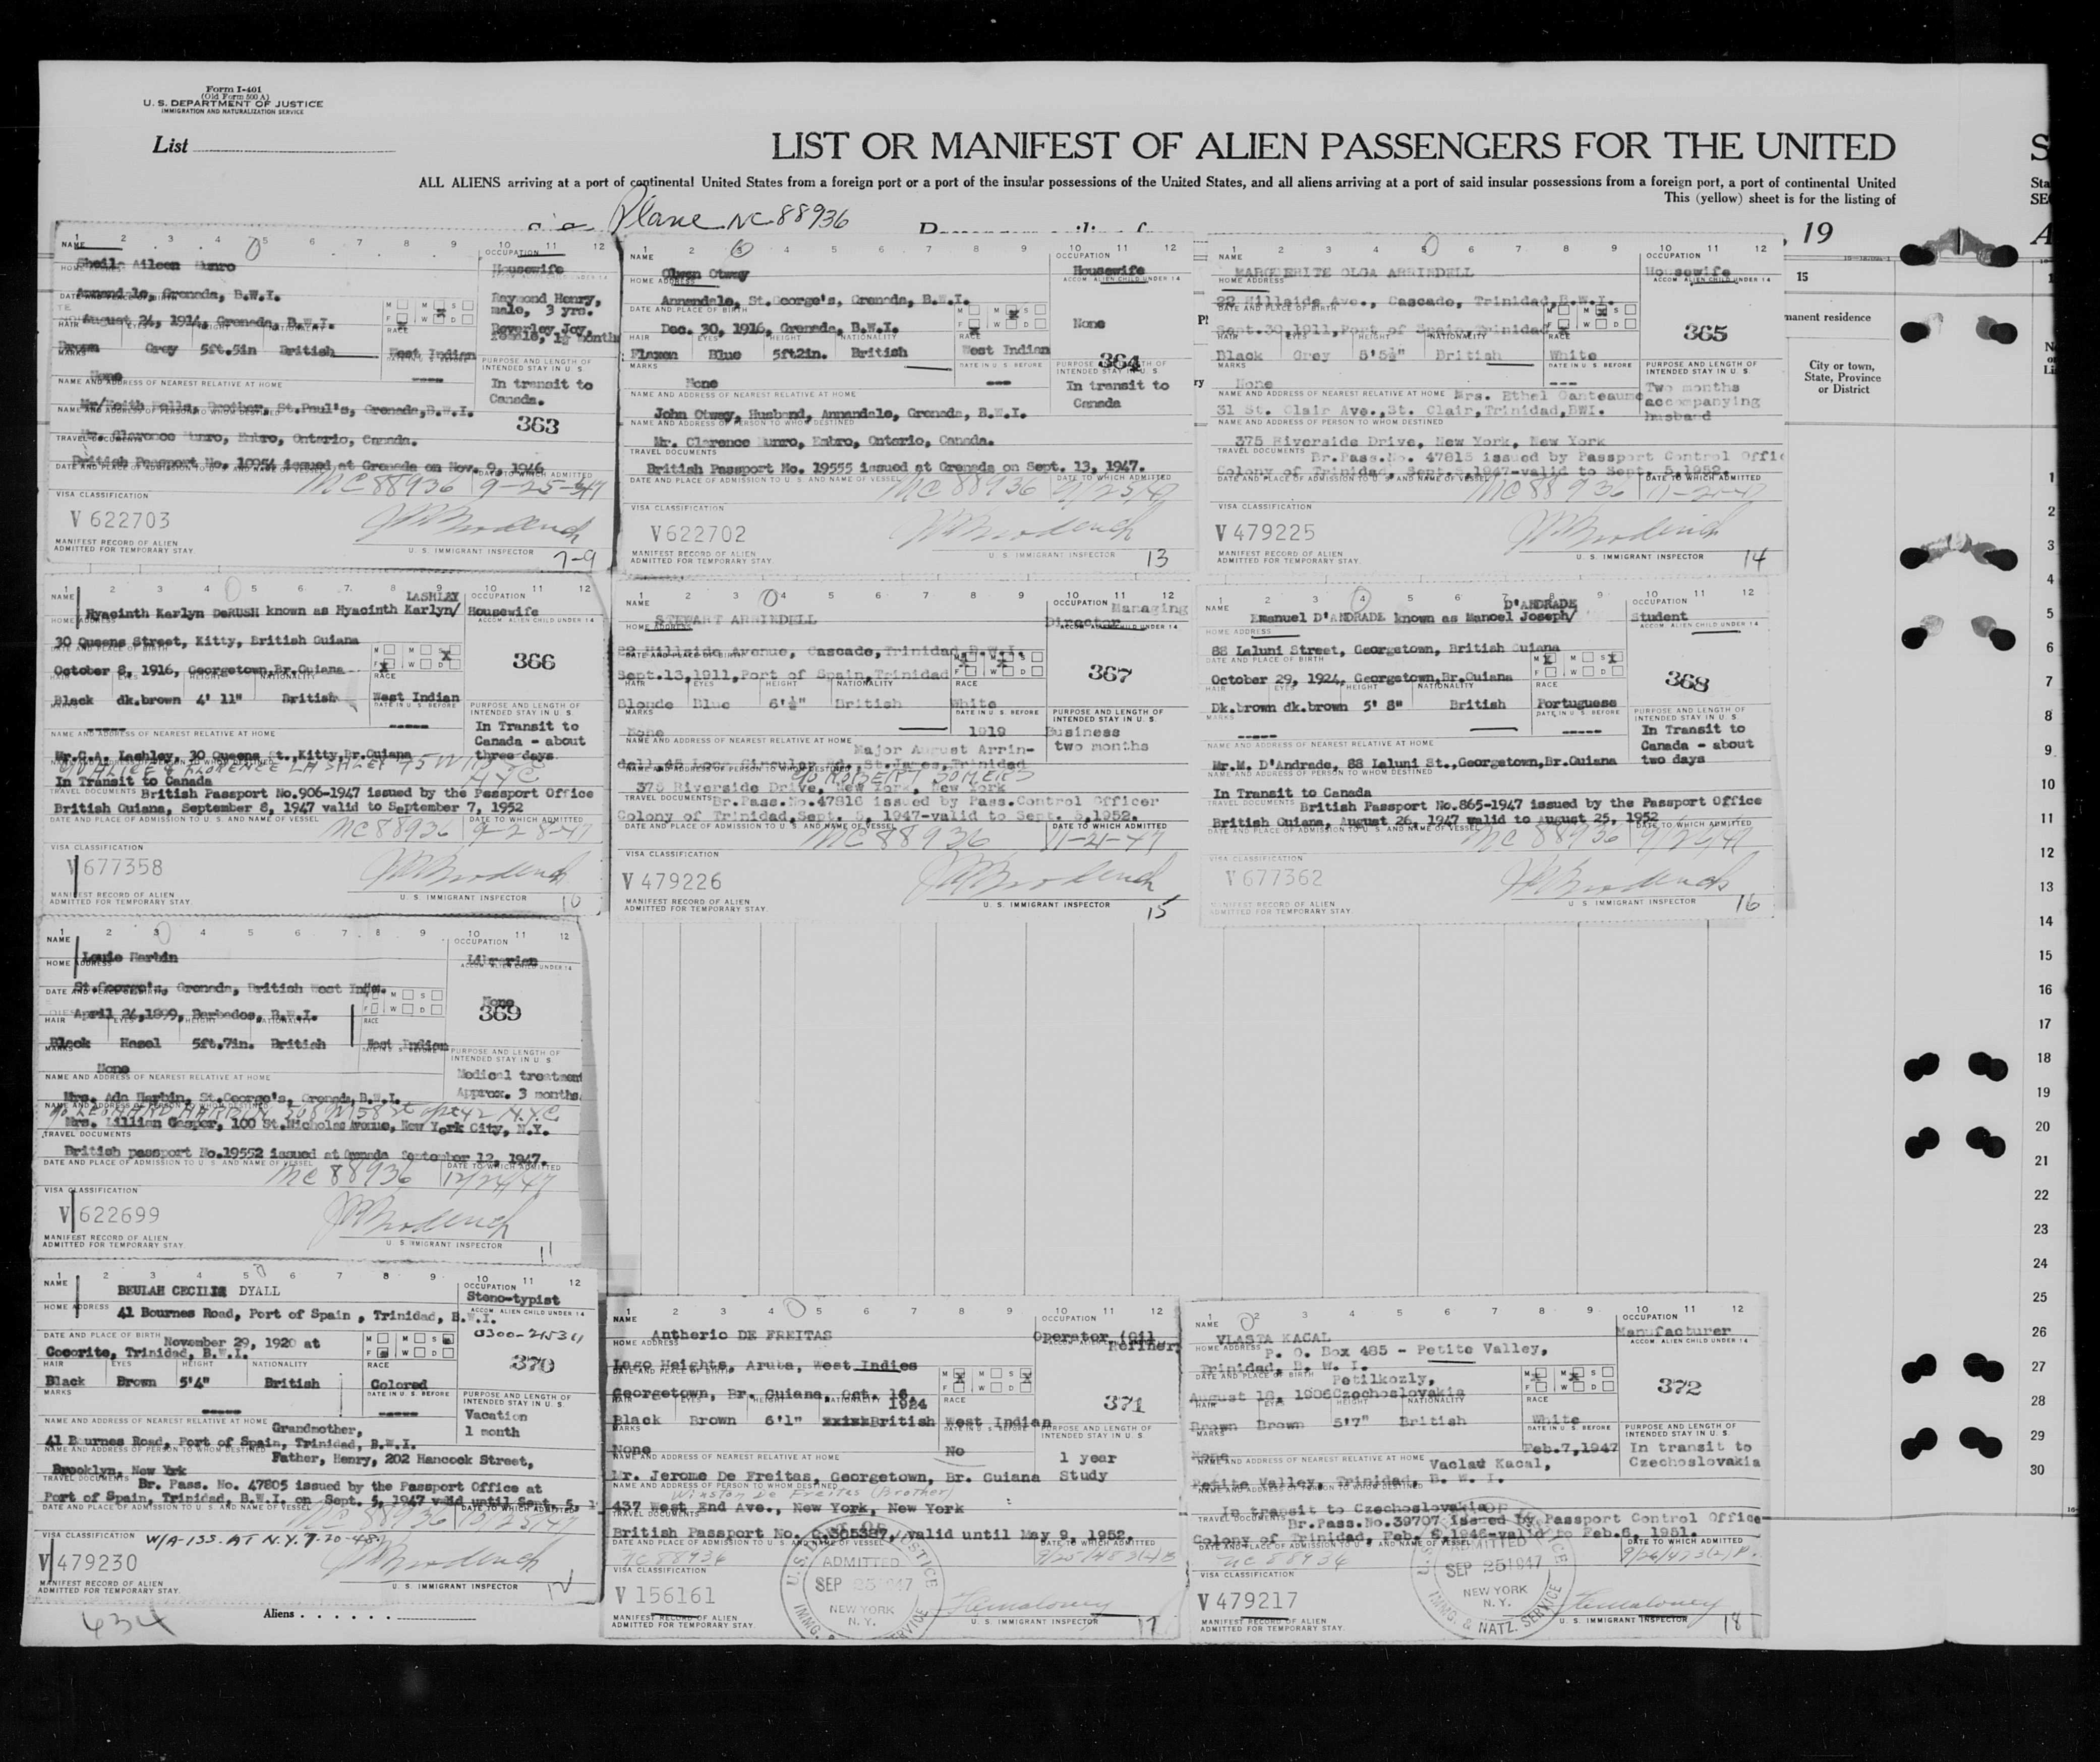 Form I-401
(Old Form 500 A)
U. S. DEPARTMENT OF JUSTICE
IMMIGRATION AND NATURALIZATION SERVICE
List
LIST OR MANIFEST OF ALIEN PASSENGERS FOR THE UNITED
ALL ALIENS arriving at a port of continental United States from a foreign port or a port of the insular possessions of the United States, and all aliens arriving at a port of said insular possessions from a foreign port, a port of continental United
This (yellow) sheet is for the listing of
Plane NC 88936
, 19
1 2 3 4 5 6 7 8 9 10 11 12
NAME
Sheila Aileen Munro
OCCUPATION
Housewife
HOME ADDRESS
ACCOM. ALIEN CHILD UNDER 14
Annandale, Grenada, B.W.I.
Raymond Henry,
male, 3 yrs.
DATE AND PLACE OF BIRTH
August 24, 1914, Grenada, B.W.I.
Beverley Joy,
HAIR EYES HEIGHT NATIONALITY RACE
Brown Grey 5ft.5in British West Indian
MARKS
None
DATE IN U. S. BEFORE
PURPOSE AND LENGTH OF
INTENDED STAY IN U. S.
In transit to
Canada.
363
NAME AND ADDRESS OF NEAREST RELATIVE AT HOME
Mr/Keith Wells, Brother, St.Paul's, Grenada,B.W.I.
NAME AND ADDRESS OF PERSON TO WHOM DESTINED
Mr. Clarence Munro, Embro, Ontario, Canada.
TRAVEL DOCUMENTS
British Passport No. 10954 issued at Grenada on Nov. 9, 1946
DATE AND PLACE OF ADMISSION TO U. S. AND NAME OF VESSEL
DATE TO WHICH ADMITTED
NC 88936 9-25-47
VISA CLASSIFICATION
V 622703
MANIFEST RECORD OF ALIEN
ADMITTED FOR TEMPORARY STAY.
U. S. IMMIGRANT INSPECTOR
7-9
1 2 3 4 5 6 7 8 9 10 11 12
NAME
Olwen Otway
OCCUPATION
Housewife
HOME ADDRESS
ACCOM. ALIEN CHILD UNDER 14
Annandale, St.George's, Grenada, B.W.I.
DATE AND PLACE OF BIRTH
Dec. 30, 1916, Grenada, B.W.I.
None
HAIR EYES HEIGHT NATIONALITY RACE
Flaxen Blue 5ft2in. British West Indian
MARKS
None
DATE IN U. S. BEFORE
364
PURPOSE AND LENGTH OF
INTENDED STAY IN U. S.
In transit to
Canada
NAME AND ADDRESS OF NEAREST RELATIVE AT HOME
John Otway, Husband, Annandale, Grenada, B.W.I.
NAME AND ADDRESS OF PERSON TO WHOM DESTINED
Mr. Clarence Munro, Embro, Ontario, Canada.
TRAVEL DOCUMENTS
British Passport No. 19555 issued at Grenada on Sept. 13, 1947.
DATE AND PLACE OF ADMISSION TO U. S. AND NAME OF VESSEL
DATE TO WHICH ADMITTED
NC 88936 9/25/47
VISA CLASSIFICATION
V 622702
MANIFEST RECORD OF ALIEN
ADMITTED FOR TEMPORARY STAY.
U. S. IMMIGRANT INSPECTOR
13
1 2 3 4 5 6 7 8 9 10 11 12
NAME
MARGUERITE OLGA ARRINDELL
OCCUPATION
Housewife
HOME ADDRESS
ACCOM. ALIEN CHILD UNDER 14
22 Hillside Ave., Cascade, Trinidad,B.W.I.
DATE AND PLACE OF BIRTH
Sept.30,1911,Port of Spain,Trinidad
365
HAIR EYES HEIGHT NATIONALITY RACE
Black Grey 5'5½" British White
MARKS
None
DATE IN U. S. BEFORE
PURPOSE AND LENGTH OF
INTENDED STAY IN U. S.
Two months
accompanying
husband
NAME AND ADDRESS OF NEAREST RELATIVE AT HOME
Mrs. Ethel Ganteaume
31 St. Clair Ave.,St. Clair,Trinidad,BWI.
NAME AND ADDRESS OF PERSON TO WHOM DESTINED
375 Riverside Drive, New York, New York
TRAVEL DOCUMENTS
Br.Pass.No. 47815 issued by Passport Control Offic
Colony of Trinidad, Sept.5,1947-valid to Sept. 5,1952.
DATE AND PLACE OF ADMISSION TO U. S. AND NAME OF VESSEL
DATE TO WHICH ADMITTED
NC 88936 11-21-47
VISA CLASSIFICATION
V 479225
MANIFEST RECORD OF ALIEN
ADMITTED FOR TEMPORARY STAY.
U. S. IMMIGRANT INSPECTOR
14
15
manent residence
City or town,
State, Province
or District
1 2 3 4 5 6 7 8 9 10 11 12
LASHLEY
NAME
Hyacinth Karlyn DeRUSH known as Hyacinth Karlyn/
OCCUPATION
Housewife
HOME ADDRESS
ACCOM. ALIEN CHILD UNDER 14
30 Queens Street, Kitty, British Guiana
DATE AND PLACE OF BIRTH
October 8, 1916, Georgetown,Br.Guiana
366
HAIR EYES HEIGHT NATIONALITY RACE
Black dk.brown 4' 11" British West Indian
MARKS
DATE IN U. S. BEFORE
PURPOSE AND LENGTH OF
INTENDED STAY IN U. S.
In Transit to
Canada - about
three days
NAME AND ADDRESS OF NEAREST RELATIVE AT HOME
Mr.C.A. Lashley, 30 Queens St.,Kitty,Br.Guiana
NAME AND ADDRESS OF PERSON TO WHOM DESTINED
In Transit to Canada
TRAVEL DOCUMENTS
British Passport No.906-1947 issued by the Passport Office
British Guiana, September 8, 1947 valid to September 7, 1952
DATE AND PLACE OF ADMISSION TO U. S. AND NAME OF VESSEL
DATE TO WHICH ADMITTED
NC 88936 9-28-47
VISA CLASSIFICATION
V 677358
MANIFEST RECORD OF ALIEN
ADMITTED FOR TEMPORARY STAY.
U. S. IMMIGRANT INSPECTOR
10
1 2 3 4 5 6 7 8 9 10 11 12
NAME
STEWART ARRINDELL
OCCUPATION
Managing
Director
HOME ADDRESS
ACCOM. ALIEN CHILD UNDER 14
22 Hillside Avenue, Cascade,Trinidad,B.W.I.
DATE AND PLACE OF BIRTH
Sept.13,1911,Port of Spain,Trinidad
367
HAIR EYES HEIGHT NATIONALITY RACE
Blonde Blue 6'½" British White
MARKS
None
DATE IN U. S. BEFORE
1919
PURPOSE AND LENGTH OF
INTENDED STAY IN U. S.
Business
two months
NAME AND ADDRESS OF NEAREST RELATIVE AT HOME
Major August Arrin-
dell,45 Long Circular Rd.,St.James,Trinidad
NAME AND ADDRESS OF PERSON TO WHOM DESTINED
c/o ROBERT SOMERS
375 Riverside Drive, New York, New York
TRAVEL DOCUMENTS
Br.Pass.No.47816 issued by Pass.Control Officer
Colony of Trinidad,Sept. 5, 1947-valid to Sept. 5,1952.
DATE AND PLACE OF ADMISSION TO U. S. AND NAME OF VESSEL
DATE TO WHICH ADMITTED
NC 88936 11-21-47
VISA CLASSIFICATION
V 479226
MANIFEST RECORD OF ALIEN
ADMITTED FOR TEMPORARY STAY.
U. S. IMMIGRANT INSPECTOR
15
1 2 3 4 5 6 7 8 9 10 11 12
D'ANDRADE
NAME
Emanuel D'ANDRADE known as Manoel Joseph/
OCCUPATION
Student
HOME ADDRESS
ACCOM. ALIEN CHILD UNDER 14
88 Laluni Street, Georgetown, British Guiana
DATE AND PLACE OF BIRTH
October 29, 1924, Georgetown,Br.Guiana
368
HAIR EYES HEIGHT NATIONALITY RACE
Dk.brown dk.brown 5' 8" British Portuguese
MARKS
DATE IN U. S. BEFORE
PURPOSE AND LENGTH OF
INTENDED STAY IN U. S.
In Transit to
Canada - about
two days
NAME AND ADDRESS OF NEAREST RELATIVE AT HOME
Mr.M. D'Andrade, 88 Laluni St.,Georgetown,Br.Guiana
NAME AND ADDRESS OF PERSON TO WHOM DESTINED
In Transit to Canada
TRAVEL DOCUMENTS
British Passport No.865-1947 issued by the Passport Office
British Guiana, August 26, 1947 valid to August 25, 1952
DATE AND PLACE OF ADMISSION TO U. S. AND NAME OF VESSEL
DATE TO WHICH ADMITTED
NC 88936
VISA CLASSIFICATION
V 677362
MANIFEST RECORD OF ALIEN
ADMITTED FOR TEMPORARY STAY.
U. S. IMMIGRANT INSPECTOR
16
1 2 3 4 5 6 7 8 9 10 11 12
NAME
Louie Harbin
OCCUPATION
Librarian
HOME ADDRESS
ACCOM. ALIEN CHILD UNDER 14
St.George's, Grenada, British West Ind's.
DATE AND PLACE OF BIRTH
None
369
April 24,1899, Barbados, B.W.I.
HAIR EYES HEIGHT NATIONALITY RACE
Black Hazel 5ft.7in. British West Indian
MARKS
None
DATE IN U. S. BEFORE
PURPOSE AND LENGTH OF
INTENDED STAY IN U. S.
Medical treatment
Approx. 3 months
NAME AND ADDRESS OF NEAREST RELATIVE AT HOME
Mrs. Ada Harbin, St.George's, Grenada,B.W.I.
NAME AND ADDRESS OF PERSON TO WHOM DESTINED
Mrs. Lillian Gasper, 100 St.Nicholas Avenue, New York City, N.Y.
TRAVEL DOCUMENTS
British passport No.19552 issued at Grenada September 12, 1947.
DATE AND PLACE OF ADMISSION TO U. S. AND NAME OF VESSEL
DATE TO WHICH ADMITTED
NC 88936 12/24/47
VISA CLASSIFICATION
V 622699
MANIFEST RECORD OF ALIEN
ADMITTED FOR TEMPORARY STAY.
U. S. IMMIGRANT INSPECTOR
11
1 2 3 4 5 6 7 8 9 10 11 12
NAME
BEULAH CECILIE DYALL
OCCUPATION
Steno-typist
HOME ADDRESS
41 Bournes Road, Port of Spain , Trinidad, B.W.I.
ACCOM. ALIEN CHILD UNDER 14
DATE AND PLACE OF BIRTH
November 29, 1920 at
Cocorite, Trinidad, B.W.I.
370
HAIR EYES HEIGHT NATIONALITY RACE
Black Brown 5'4" British Colored
MARKS
DATE IN U. S. BEFORE
PURPOSE AND LENGTH OF
INTENDED STAY IN U. S.
Vacation
1 month
NAME AND ADDRESS OF NEAREST RELATIVE AT HOME
Grandmother,
41 Bournes Road, Port of Spain, Trinidad, B.W.I.
NAME AND ADDRESS OF PERSON TO WHOM DESTINED
Father, Henry, 202 Hancock Street,
Brooklyn, New York
TRAVEL DOCUMENTS
Br. Pass. No. 47805 issued by the Passport Office at
Port of Spain, Trinidad, B.W.I. on Sept. 5, 1947 valid until Sept. 5, 1
DATE AND PLACE OF ADMISSION TO U. S. AND NAME OF VESSEL
DATE TO WHICH ADMITTED
NC 88936 10/25/47
VISA CLASSIFICATION
W/A-133. AT N.Y. 7-20-48
V 479230
MANIFEST RECORD OF ALIEN
ADMITTED FOR TEMPORARY STAY.
U. S. IMMIGRANT INSPECTOR
12
1 2 3 4 5 6 7 8 9 10 11 12
NAME
Antherio DE FREITAS
OCCUPATION
Operator (Oil
Refiner)
HOME ADDRESS
Lago Heights, Aruba, West Indies
DATE AND PLACE OF BIRTH
Georgetown, Br. Guiana, Oct. 16,
1924
371
HAIR EYES HEIGHT NATIONALITY RACE
Black Brown 6'1" British West Indian
MARKS
None
DATE IN U. S. BEFORE
No
PURPOSE AND LENGTH OF
INTENDED STAY IN U. S.
1 year
Study
NAME AND ADDRESS OF NEAREST RELATIVE AT HOME
Mr. Jerome De Freitas, Georgetown, Br. Guiana
NAME AND ADDRESS OF PERSON TO WHOM DESTINED
Winston De Freitas (Brother)
437 West End Ave., New York, New York
TRAVEL DOCUMENTS
British Passport No. C.305327, valid until May 9, 1952.
DATE AND PLACE OF ADMISSION TO U. S. AND NAME OF VESSEL
DATE TO WHICH ADMITTED
NC 88936
VISA CLASSIFICATION
ADMITTED
SEP 25 1947
NEW YORK
N. Y.
V 156161
MANIFEST RECORD OF ALIEN
ADMITTED FOR TEMPORARY STAY.
U. S. IMMIGRANT INSPECTOR
17
1 2 3 4 5 6 7 8 9 10 11 12
NAME
VLASTA KACAL
OCCUPATION
Manufacturer
HOME ADDRESS
P. O. Box 485 - Petite Valley,
Trinidad, B. W. I.
ACCOM. ALIEN CHILD UNDER 14
DATE AND PLACE OF BIRTH
Petilkozly,
August 18, 1906 Czechoslovakia
372
HAIR EYES HEIGHT NATIONALITY RACE
Brown Brown 5'7" British White
MARKS
None
DATE IN U. S. BEFORE
Feb.7,1947
PURPOSE AND LENGTH OF
INTENDED STAY IN U. S.
In transit to
Czechoslovakia
NAME AND ADDRESS OF NEAREST RELATIVE AT HOME
Vaclav Kacal,
Petite Valley, Trinidad, B. W. I.
NAME AND ADDRESS OF PERSON TO WHOM DESTINED
In transit to Czechoslovakia
TRAVEL DOCUMENTS
Br.Pass.No.39707 issued by Passport Control Office
Colony of Trinidad, Feb. 6,1946-valid to Feb.6, 1951.
DATE AND PLACE OF ADMISSION TO U. S. AND NAME OF VESSEL
DATE TO WHICH ADMITTED
NC 88936
VISA CLASSIFICATION
ADMITTED
SEP 25 1947
NEW YORK
N. Y.
IMMG. & NATZ. SERVICE
V 479217
MANIFEST RECORD OF ALIEN
ADMITTED FOR TEMPORARY STAY.
U. S. IMMIGRANT INSPECTOR
18
434
Aliens
1
2
3
4
5
6
7
8
9
10
11
12
13
14
15
16
17
18
19
20
21
22
23
24
25
26
27
28
29
30